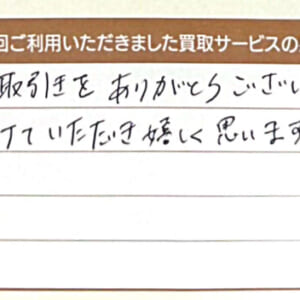 回ご利用いただきました買取サービスの
取引きを ありがとうござい
けていただき嬉しく思います